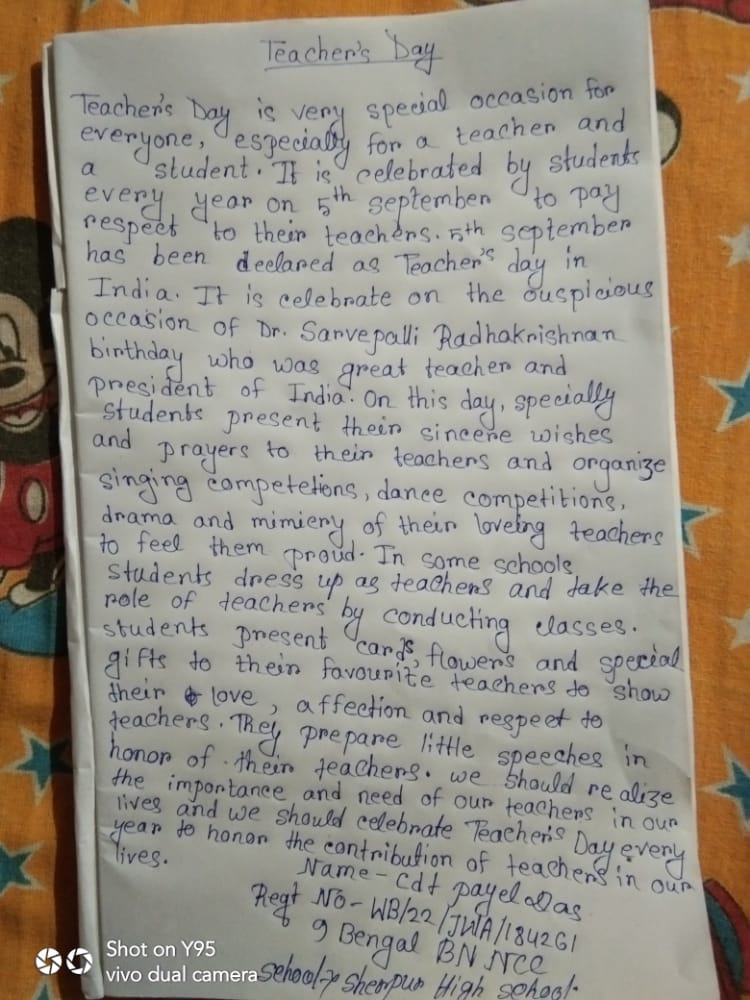 Teacher's Day
Teacher's Day is very special occasion for
everyone, especially for a teacher and
a student. It is celebrated by students
every year on 5th september to pay
respect to their teachers. 5th september
has been declared as Teacher's day in
India. It is celebrate on the ouspicious
occasion of Dr. Sarvepalli Radhakrishnan
birthday who was great teacher and
president of India. On this day, specially
students present their sincere wishes
and prayers to their teachers and organize
singing competetions, dance competitions,
drama and mimicry of their loveing teachers
to feel them proud. In some schools
students dress up as teachers and take the
role of teachers by conducting classes.
students present cards, flowers and special
gifts to their favourite teachers to show
their love, affection and respect to
teachers. They prepare little speeches in
honor of their teachers. we should realize
the importance and need of our teachers in our
lives and we should celebrate Teacher's Day every
year to honor the contribution of teachers in our
lives.
Name - Cdt payel Das
Regt No - WB/22/JWA/184261
9 Bengal BN NCC
School → Sherpur High school.
Shot on Y95
vivo dual camera